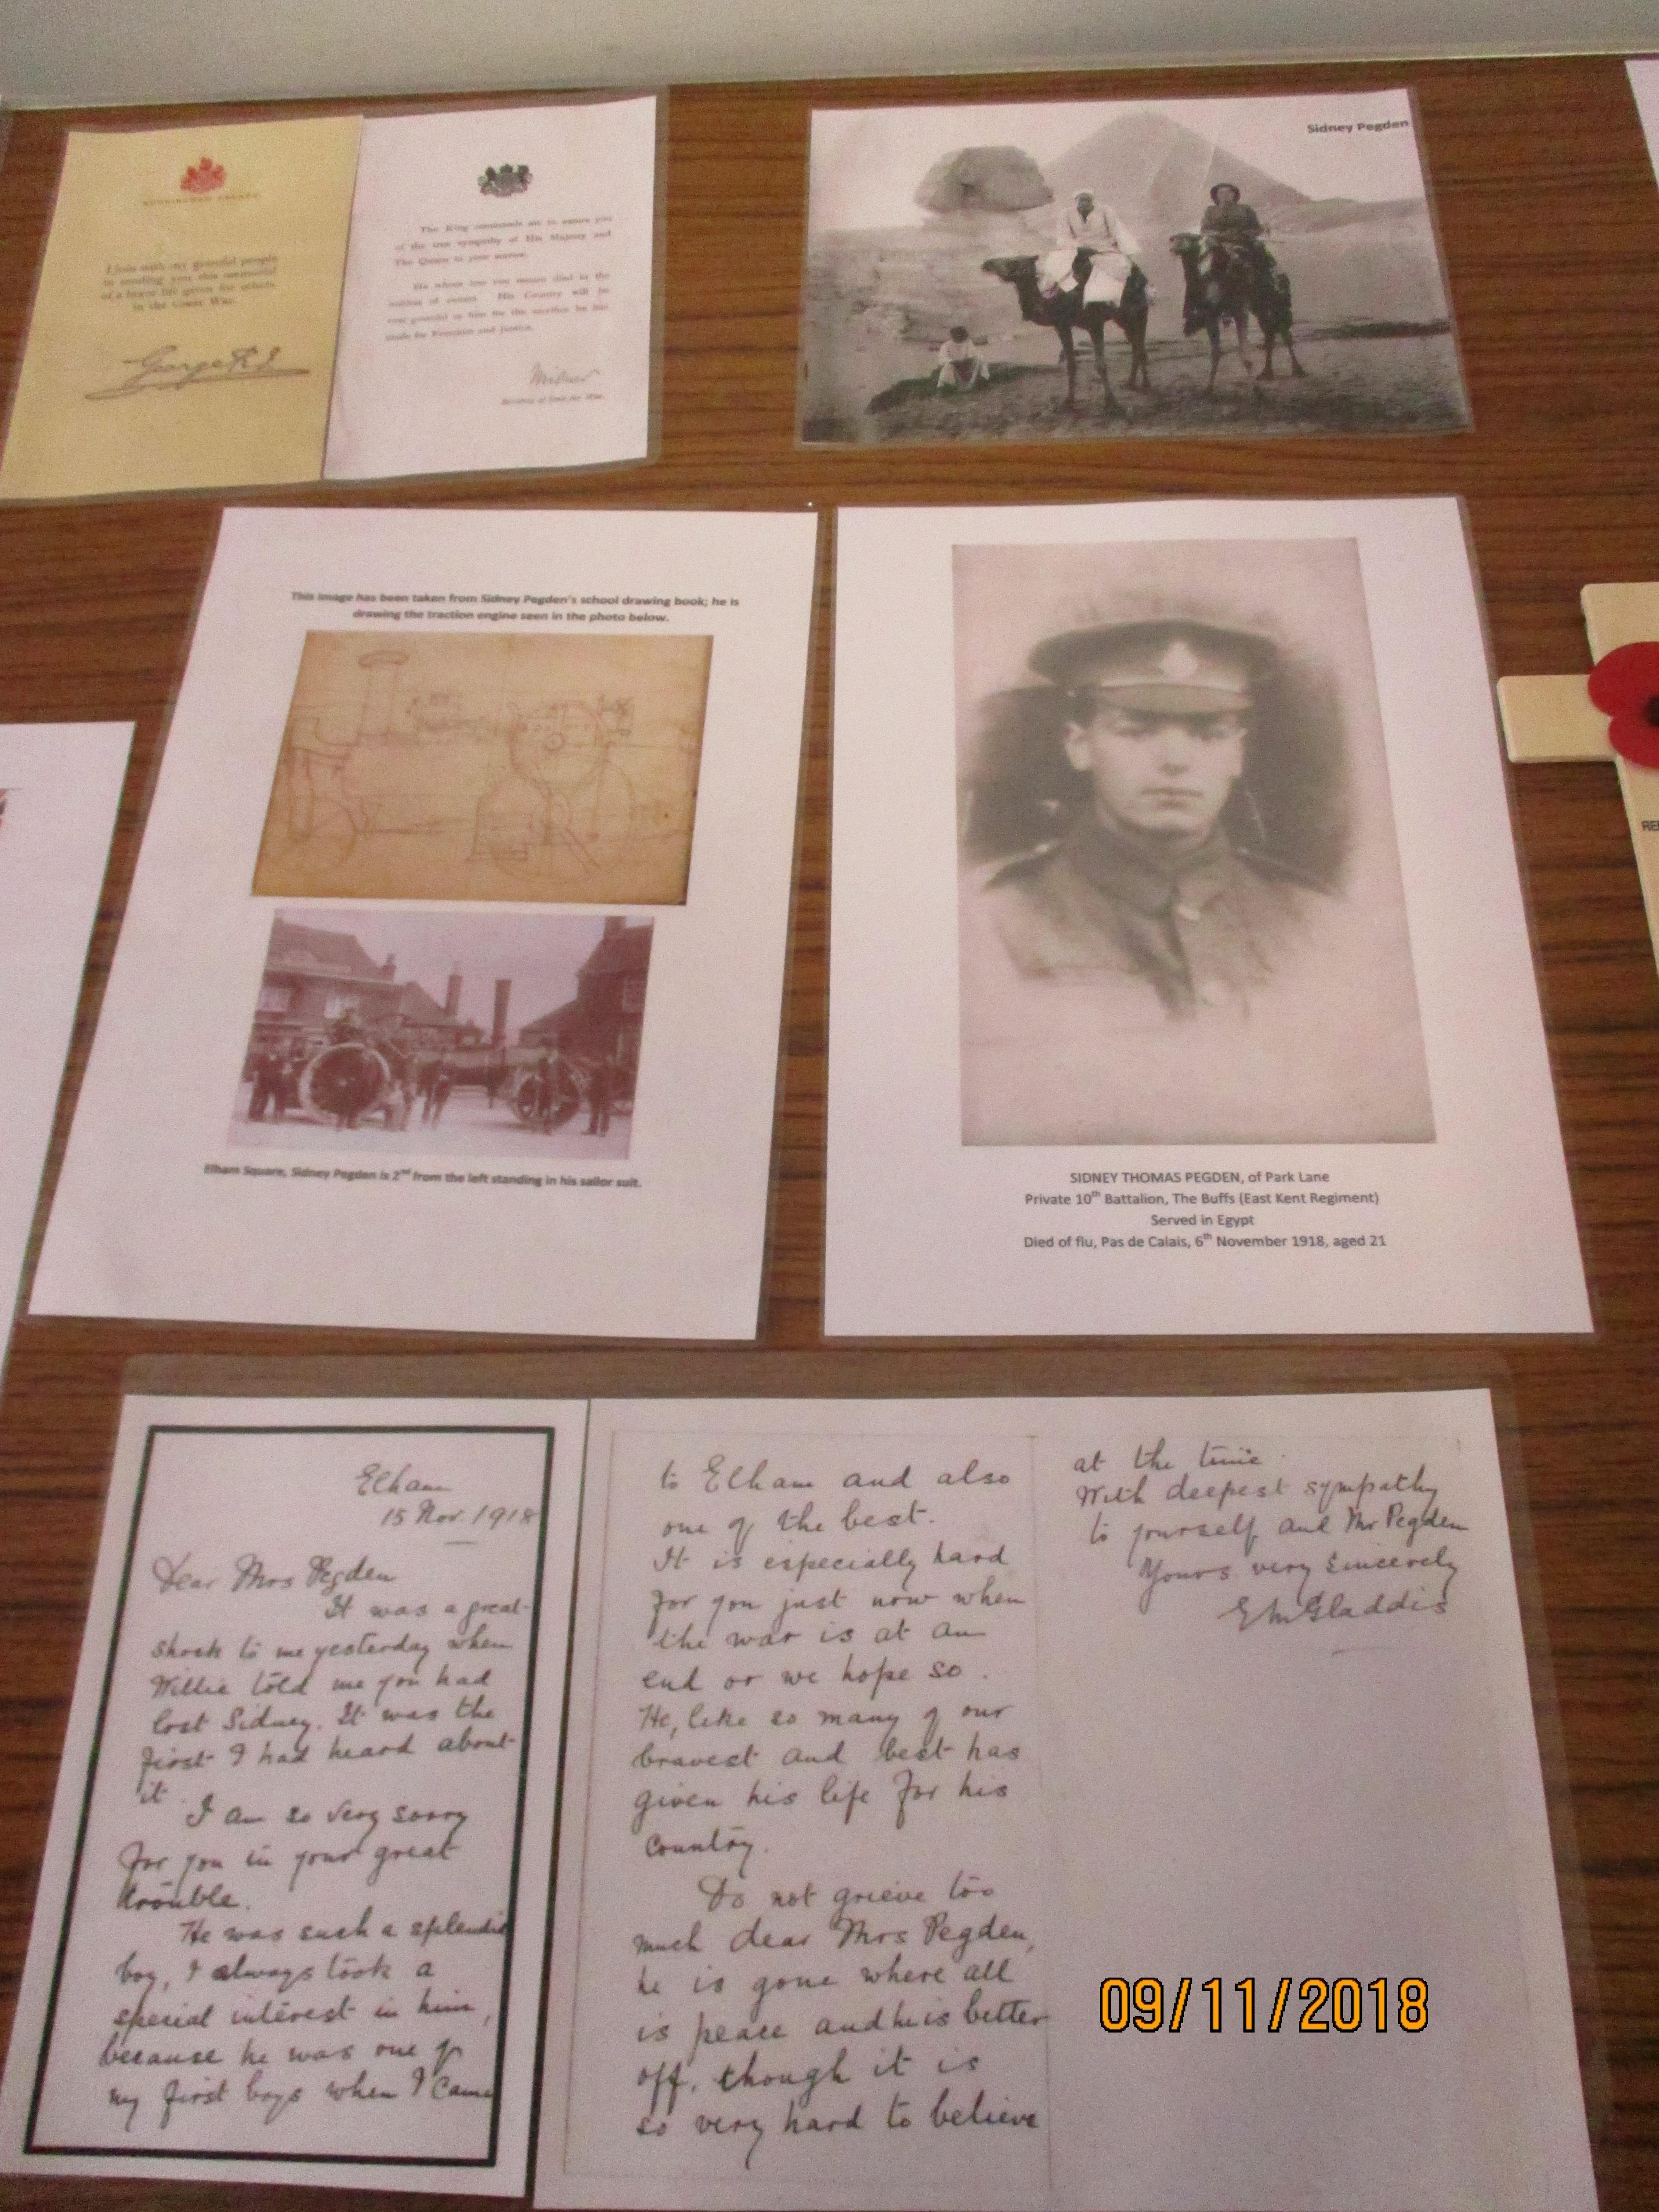 BUCKINGHAM PALACE
I join with my grateful people
in sending you this memorial
of a brave life given for others
in the Great War.
George R.I.
The King commands me to assure you
of the true sympathy of His Majesty and
The Queen in your sorrow.
He whose loss you mourn died in the
noblest of causes. His Country will be
ever grateful to him for the sacrifice he has
made for Freedom and Justice.
Milner
Secretary of State for War.
Sidney Pegden
This image has been taken from Sidney Pegden's school drawing book; he is
drawing the traction engine seen in the photo below.
Elham Square, Sidney Pegden is 2nd from the left standing in his sailor suit.
SIDNEY THOMAS PEGDEN, of Park Lane
Private 10th Battalion, The Buffs (East Kent Regiment)
Served in Egypt
Died of flu, Pas de Calais, 6th November 1918, aged 21
Elham
15 Nov. 1918
Dear Mrs Pegden
It was a great
shock to me yesterday when
Willie told me you had
lost Sidney. It was the
first I had heard about
it.
I am so very sorry
for you in your great
trouble.
He was such a splendid
boy, I always took a
special interest in him,
because he was one of
my first boys when I came
to Elham and also
one of the best.
It is especially hard
for you just now when
the war is at an
end or we hope so.
He, like so many of our
bravest and best has
given his life for his
country.
Do not grieve too
much dear Mrs Pegden,
he is gone where all
is peace and he is better
off, though it is
so very hard to believe
at the time.
With deepest sympathy
to yourself and Mr Pegden
Yours very sincerely
E M Gladdis
09/11/2018